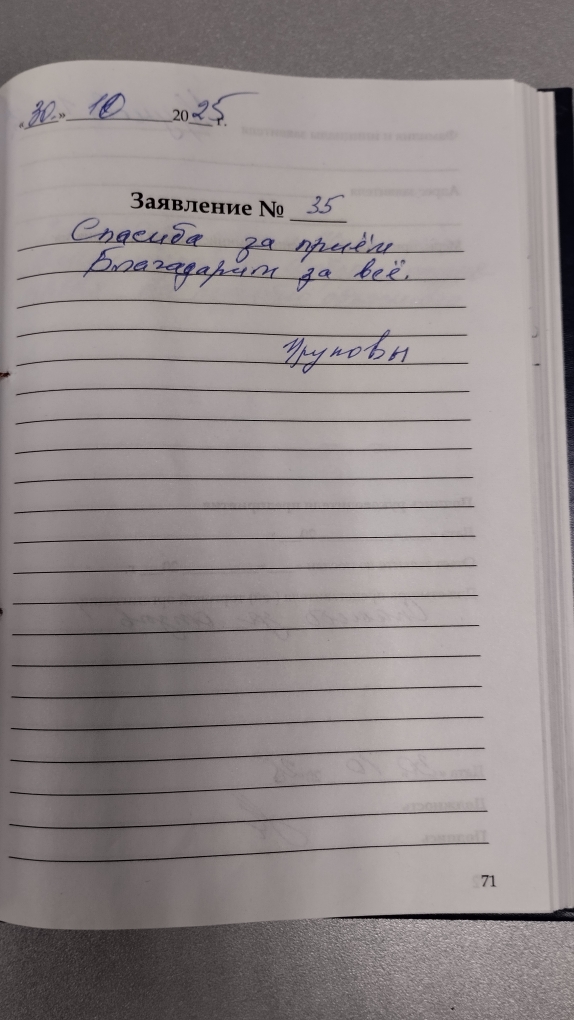 «30» 10 2025 г.
Заявление № 35
Спасиба за приём
Благадарим за всё.
71